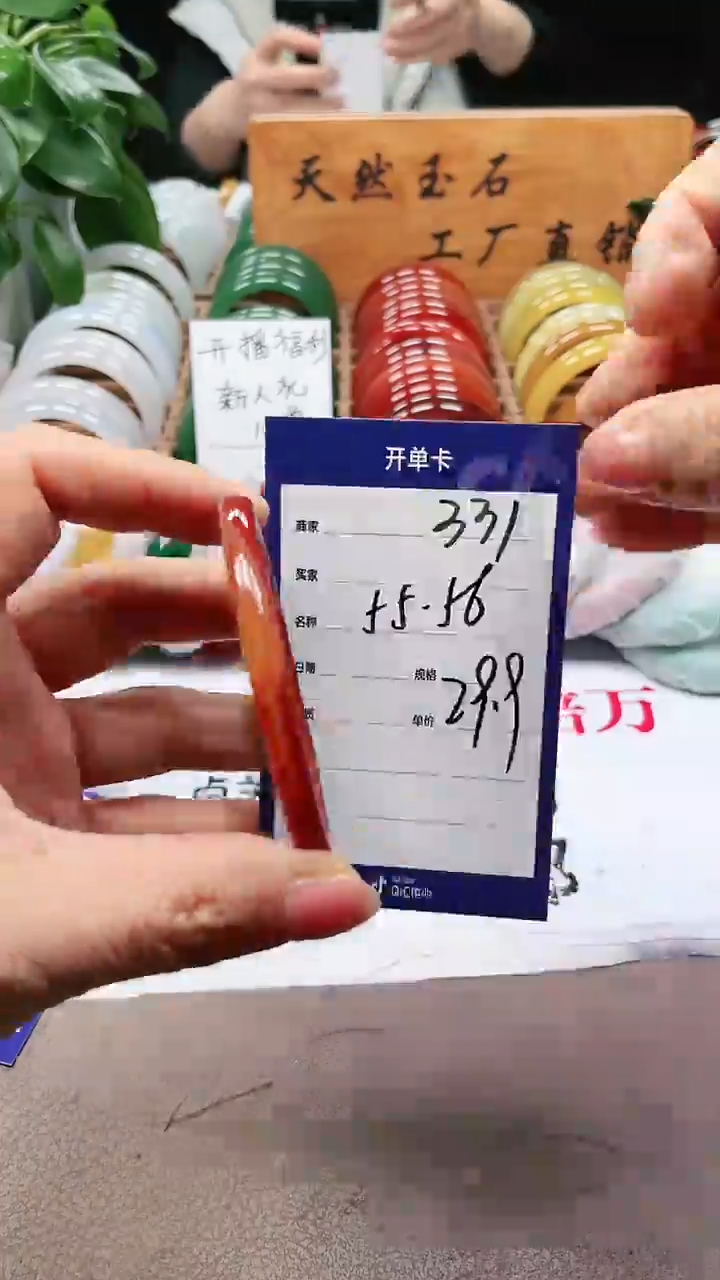 天然玉石
工厂直销
开播福利
新人礼
开单卡
商家 331
买家
名称 55.56
日期 规格
单价 29.9
倍万